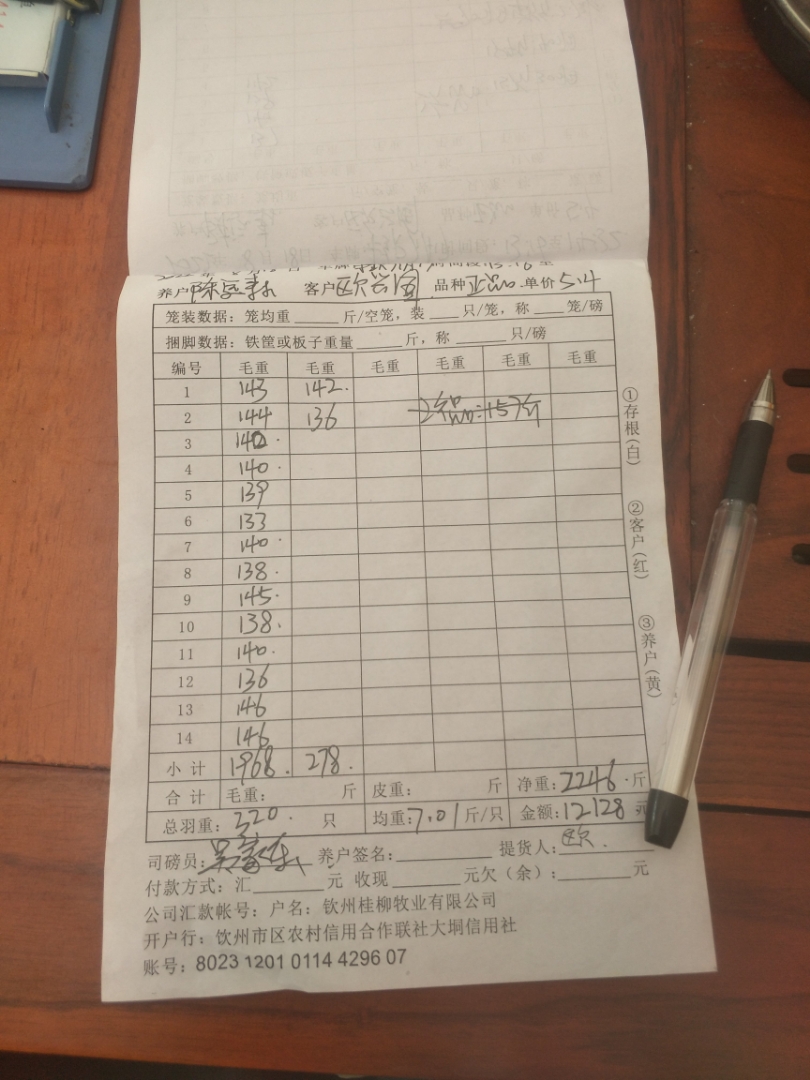 养户 陈远森 客户 欧 品种 正品 单价 5.4
笼装数据：笼均重 斤/空笼，装 只/笼，称 笼/磅
捆脚数据：铁筐或板子重量 斤，称 只/磅
编号 毛重 毛重 毛重 毛重 毛重 毛重
1 143 142
2 144 136
3 140
4 140
5 139
6 133
7 140
8 138
9 145
10 138
11 140
12 136
13 146
14 146
小计 1968 278
合计 毛重： 斤 皮重： 斤 净重：2246 斤
总羽重：320 只 均重：7.01 斤/只 金额：12128 元
司磅员： 养户签名： 提货人：欧
付款方式：汇 元 收现 元欠（余）： 元
公司汇款帐号：户名：钦州桂柳牧业有限公司
开户行：钦州市区农村信用合作联社大垌信用社
账号：8023 1201 0114 4296 07
①存根（白）
②客户（红）
③养户（黄）